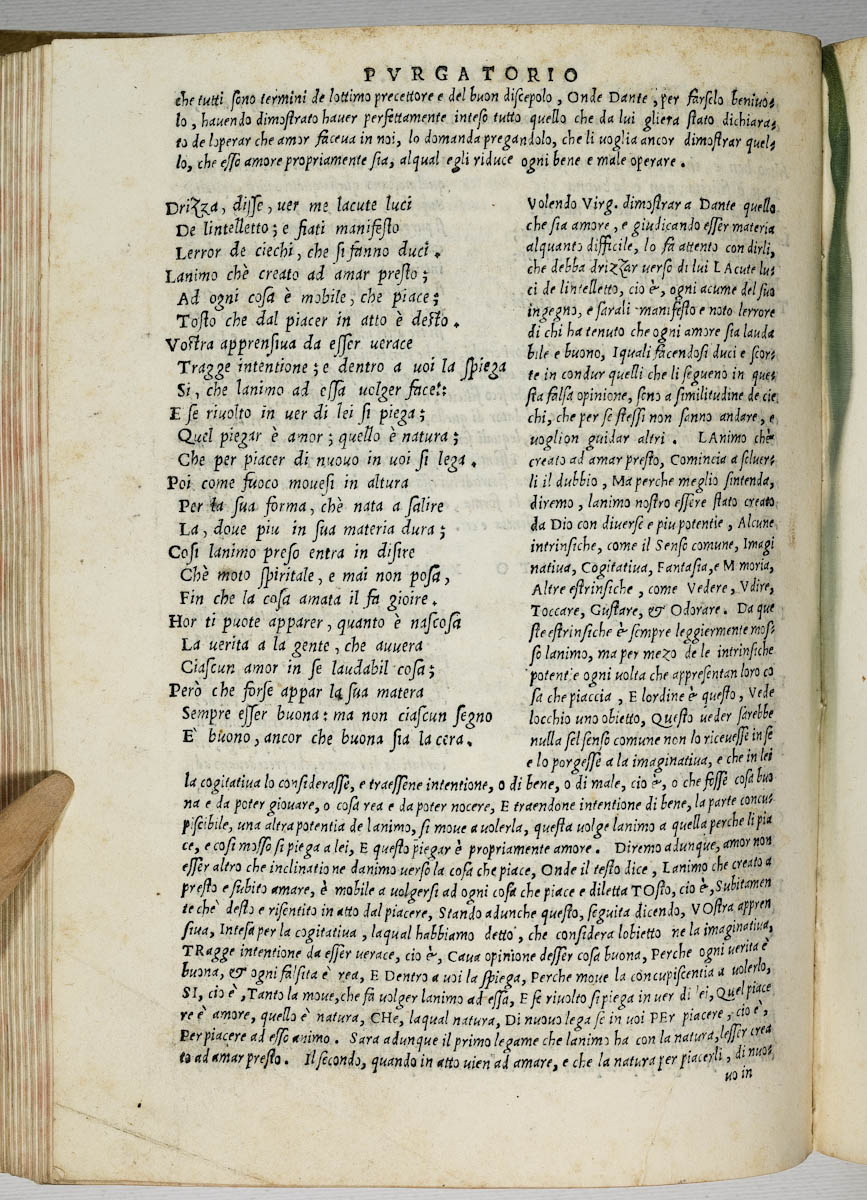 PVRGATORIO
che tutti sono termini de lottimo precettore e del buon discepolo, Onde Dante, per farselo beniuo-
lo, hauendo dimostrato hauer perfettamente inteso tutto quello che da lui gliera stato dichiara-
to de loperar che amor faceua in noi, lo domanda pregandolo, che li voglia ancor dimostrar quel-
lo, che esso amore propriamente sia, alqual egli riduce ogni bene e male operare.
Drizza, disse, uer me lacute luci
De lintelletto; e fiati manifesto
Lerror de ciechi, che si fanno duci.
Lanimo chè creato ad amar presto;
Ad ogni cosa è mobile, che piace;
Tosto che dal piacer in atto è desto.
Vostra apprensiua da esser uerace
Tragge intentione; e dentro a uoi la spiega
Si, che lanimo ad essa uolger face::
E se riuolto in uer di lei si piega;
Quel piegar è amor; quello è natura;
Che per piacer di nuouo in uoi si lega.
Poi come fuoco mouesi in altura
Per la sua forma, chè nata a salire
La, doue piu in sua materia dura;
Cosi lanimo preso entra in disire
Chè moto spiritale, e mai non posa,
Fin che la cosa amata il fa gioire.
Hor ti puote apparer, quanto è nascosa
La uerita a la gente, che auuera
Ciascun amor in se laudabil cosa;
Però che forse appar la sua matera
Sempre esser buona: ma non ciascun segno
E' buono, ancor che buona sia la cera.
Volendo Virg. dimostrar a Dante quello
che sia amore, e giudicando esser materia
alquanto difficile, lo fa attento con dirli,
che debba drizzar uerso di lui LAcute lu-
ci de lintelletto, cio è, ogni acume del suo
ingegno, e sarali manifesto e noto lerrore
di chi ha tenuto che ogni amore sia lauda
bile e buono, I quali facendosi duci e scor-
te in condur quelli che li segueno in que-
sta falsa opinione, sono a similitudine de cie
chi, che per se stessi non sanno andare, e
uoglion guidar altri. LAnimo chè
creato ad amar presto, Comincia a soluer-
li il dubbio, Ma perche meglio sintenda,
diremo, lanimo nostro essere stato creato
da Dio con diuerse e piu potentie, Alcune
intrinsiche, come il Senso comune, Imagi
natiua, Cogitatiua, Fantasia, e M moria,
Altre estrinsiche, come Vedere, Vdire,
Toccare, Gustare, & Odorare. Da que
ste estrinsiche è sempre leggiermente mos-
so lanimo, ma per mezo de le intrinsiche
potentie ogni uolta che appresentan loro co
sa che piaccia, E lordine è questo, Vede
locchio uno obietto, Questo ueder sarebbe
nulla sel senso comune non lo riceuesse in se
e lo porgesse a la imaginatiua, e che in lei
la cogitatiua lo considerasse, e traessene intentione, o di bene, o di male, cio è, o che fosse cosa buo
na e da poter giouare, o cosa rea e da poter nocere, E traendone intentione di bene, la parte concu-
piscibile, una altra potentia de lanimo, si moue a uolerla, questa uolge lanimo a quella perche li pia
ce, e cosi mosso si piega a lei, E questo piegar è propriamente amore. Diremo adunque, amor non
esser altro che inclinatione danimo uerso la cosa che piace, Onde il testo dice, Lanimo che creato a
presto e subito amare, è mobile a uolgersi ad ogni cosa che piace e diletta TOsto, cio è, Subitamen
te chè desto e risentito in atto dal piacere, Stando adunche questo, seguita dicendo, VOstra appren
siua, Intesa per la cogitatiua, laqual habbiamo detto, che considera lobietto ne la imaginatiua,
TRagge intentione da esser uerace, cio è, Caua opinione desser cosa buona, Perche ogni uerita è
buona, & ogni falsita è rea, E Dentro a uoi la spiega, Perche moue la concupiscentia a uolerlo,
SI, cio è, Tanto la moue, che fa uolger lanimo ad essa, E se riuolto si piega in uer di lei, Quel piace
re è amore, quello è natura, CHe, laqual natura, Di nuouo lega se in uoi PEr piacere, cio è,
Per piacere ad esso animo. Sara adunque il primo legame che lanimo ha con la natura, lesser crea
to ad amar presto. Il secondo, quando in atto uien ad amare, e che la natura per piacerli, di nuo-
uo in